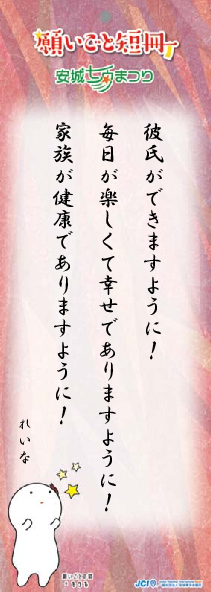 願いごと短冊
安城七夕まつり
彼氏ができますように！
毎日が楽しくて幸せでありますように！
家族が健康でありますように！
れいな
願いごとの妖精
きーぼー
JCI